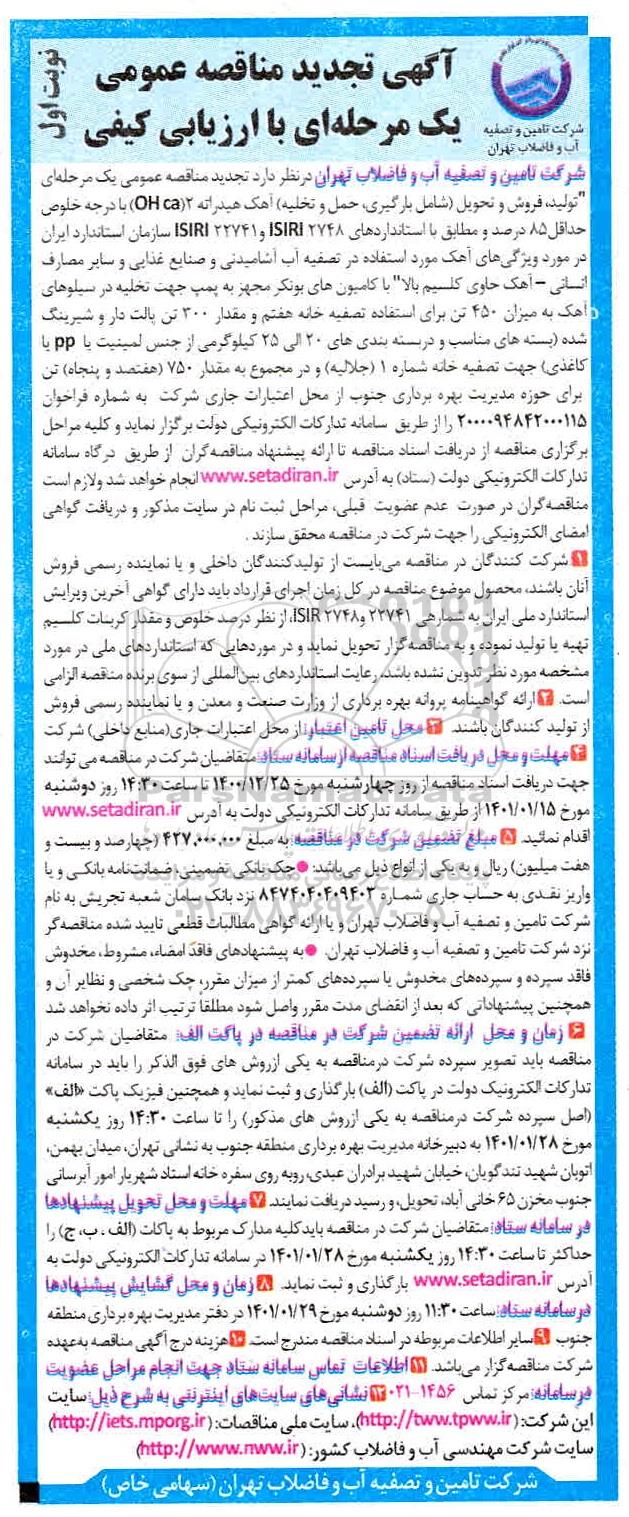 نوبت اول
آگهی تجدید مناقصه عمومی
یک مرحله‌ای با ارزیابی کیفی
شرکت تامین و تصفیه
آب و فاضلاب تهران
شرکت تامین و تصفیه آب و فاضلاب تهران درنظر دارد تجدید مناقصه عمومی یک مرحله‌ای
"تولید، فروش و تحویل (شامل بارگیری، حمل و تخلیه) آهک هیدراته ۲(OH ca) با درجه خلوص
حداقل ۸۵ درصد و مطابق با استانداردهای ISIRI ۲۷۴۸ و ISIRI ۲۲۷۴۱ سازمان استاندارد ایران
در مورد ویژگی‌های آهک مورد استفاده در تصفیه آب آشامیدنی و صنایع غذایی و سایر مصارف
انسانی – آهک حاوی کلسیم بالا" با کامیون های بونکر مجهز به پمپ جهت تخلیه در سیلوهای
آهک به میزان ۴۵۰ تن برای استفاده تصفیه خانه هفتم و مقدار ۳۰۰ تن پالت دار و شیرینگ
شده (بسته های مناسب و دربسته بندی های ۲۰ الی ۲۵ کیلوگرمی از جنس لمینیت یا pp یا
کاغذی) جهت تصفیه خانه شماره ۱ (جلالیه) و در مجموع به مقدار ۷۵۰ (هفتصد و پنجاه) تن
برای حوزه مدیریت بهره برداری جنوب از محل اعتبارات جاری شرکت به شماره فراخوان
۲۰۰۰۰۹۴۸۴۲۰۰۰۱۱۵ را از طریق سامانه تدارکات الکترونیکی دولت برگزار نماید و کلیه مراحل
برگزاری مناقصه از دریافت اسناد مناقصه تا ارائه پیشنهاد مناقصه‌گران از طریق درگاه سامانه
تدارکات الکترونیکی دولت (ستاد) به آدرس www.setadiran.ir انجام خواهد شد ولازم است
مناقصه‌گران در صورت عدم عضویت قبلی، مراحل ثبت نام در سایت مذکور و دریافت گواهی
امضای الکترونیکی را جهت شرکت در مناقصه محقق سازند.
۱ شرکت کنندگان در مناقصه می‌بایست از تولیدکنندگان داخلی و یا نماینده رسمی فروش
آنان باشند، محصول موضوع مناقصه در کل زمان اجرای قرارداد باید دارای گواهی آخرین ویرایش
استاندارد ملی ایران به شمارهی ۲۲۷۴۱ و ISIR ۲۷۴۸، از نظر درصد خلوص و مقدار کربنات کلسیم
تهیه یا تولید نموده و به مناقصه‌گزار تحویل نماید و در موردهایی که استانداردهای ملی در مورد
مشخصه مورد نظر تدوین نشده باشد، رعایت استانداردهای بین‌المللی از سوی برنده مناقصه الزامی
است. ۲ ارائه گواهینامه پروانه بهره برداری از وزارت صنعت و معدن و یا نماینده رسمی فروش
از تولید کنندگان باشند. ۳ محل تامین اعتبار: از محل اعتبارات جاری(منابع داخلی) شرکت
۴ مهلت و محل دریافت اسناد مناقصه از سامانه ستاد: متقاضیان شرکت در مناقصه می توانند
جهت دریافت اسناد مناقصه از روز چهارشنبه مورخ ۱۴۰۰/۱۲/۲۵ تا ساعت ۱۴:۳۰ روز دوشنبه
مورخ ۱۴۰۱/۰۱/۱۵ از طریق سامانه تدارکات الکترونیکی دولت به آدرس www.setadiran.ir
اقدام نمائید. ۵ مبلغ تضمین شرکت در مناقصه: به مبلغ ۴۲۷،۰۰۰،۰۰۰ (چهارصد و بیست و
هفت میلیون) ریال و به یکی از انواع ذیل می‌باشد: ● چک بانکی تضمینی، ضمانت‌نامه بانکی و یا
واریز نقدی به حساب جاری شماره ۸۴۷۴۰۴۰۴۰۹۴۰۳ نزد بانک سامان شعبه تجریش به نام
شرکت تامین و تصفیه آب و فاضلاب تهران و یا ارائه گواهی مطالبات قطعی تایید شده مناقصه‌گر
نزد شرکت تامین و تصفیه آب و فاضلاب تهران. ● به پیشنهادهای فاقد امضاء، مشروط، مخدوش
فاقد سپرده و سپرده‌های مخدوش یا سپرده‌های کمتر از میزان مقرر، چک شخصی و نظایر آن و
همچنین پیشنهاداتی که بعد از انقضای مدت مقرر واصل شود مطلقاً ترتیب اثر داده نخواهد شد
۶ زمان و محل ارائه تضمین شرکت در مناقصه در پاکت الف: متقاضیان شرکت در
مناقصه باید تصویر سپرده شرکت درمناقصه به یکی ازروش های فوق الذکر را باید در سامانه
تدارکات الکترونیک دولت در پاکت (الف) بارگذاری و ثبت نماید و همچنین فیزیک پاکت «الف»
(اصل سپرده شرکت درمناقصه به یکی ازروش های مذکور) را تا ساعت ۱۴:۳۰ روز یکشنبه
مورخ ۱۴۰۱/۰۱/۲۸ به دبیرخانه مدیریت بهره برداری منطقه جنوب به نشانی تهران، میدان بهمن،
اتوبان شهید تندگویان، خیابان شهید برادران عبدی، روبه روی سفره خانه استاد شهریار امور آبرسانی
جنوب مخزن ۶۵ خانی آباد، تحویل، و رسید دریافت نمایند. ۷ مهلت و محل تحویل پیشنهادها
در سامانه ستاد: متقاضیان شرکت در مناقصه باید کلیه مدارک مربوط به پاکات (الف، ب، ج) را
حداکثر تا ساعت ۱۴:۳۰ روز یکشنبه مورخ ۱۴۰۱/۰۱/۲۸ در سامانه تدارکات الکترونیکی دولت به
آدرس www.setadiran.ir بارگذاری و ثبت نماید. ۸ زمان و محل گشایش پیشنهادها
درسامانه ستاد: ساعت ۱۱:۳۰ روز دوشنبه مورخ ۱۴۰۱/۰۱/۲۹ در دفتر مدیریت بهره برداری منطقه
جنوب ۹ سایر اطلاعات مربوطه در اسناد مناقصه مندرج است. ۱۰ هزینه درج آگهی مناقصه به‌عهده
شرکت مناقصه‌گزار می‌باشد. ۱۱ اطلاعات تماس سامانه ستاد جهت انجام مراحل عضویت
درسامانه: مرکز تماس ۱۴۵۶-۰۲۱ ۱۲ نشانی‌های سایت‌های اینترنتی به شرح ذیل: سایت
این شرکت: (http://tww.tpww.ir)، سایت ملی مناقصات: (http://iets.mporg.ir)
سایت شرکت مهندسی آب و فاضلاب کشور: (http://www.nww.ir)
شرکت تامین و تصفیه آب و فاضلاب تهران (سهامی خاص)
ParsNamadData